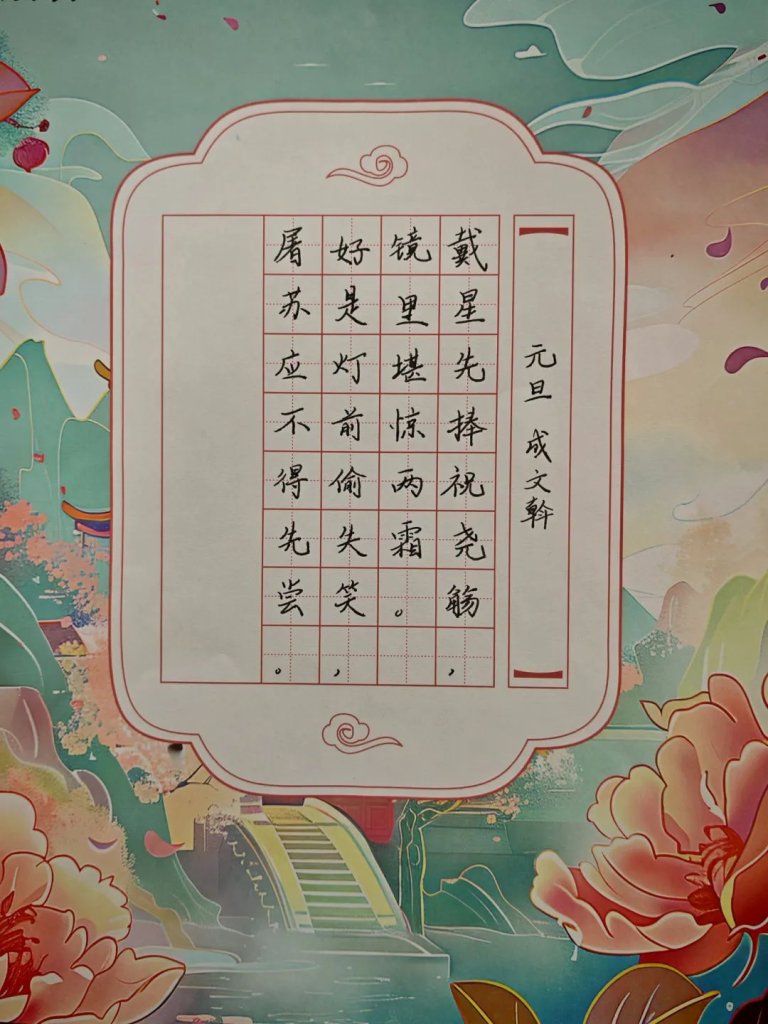 元旦 成文斡
戴星先捧祝尧觞，
镜里堪惊两霜。
好是灯前偷失笑，
屠苏应不得先尝。